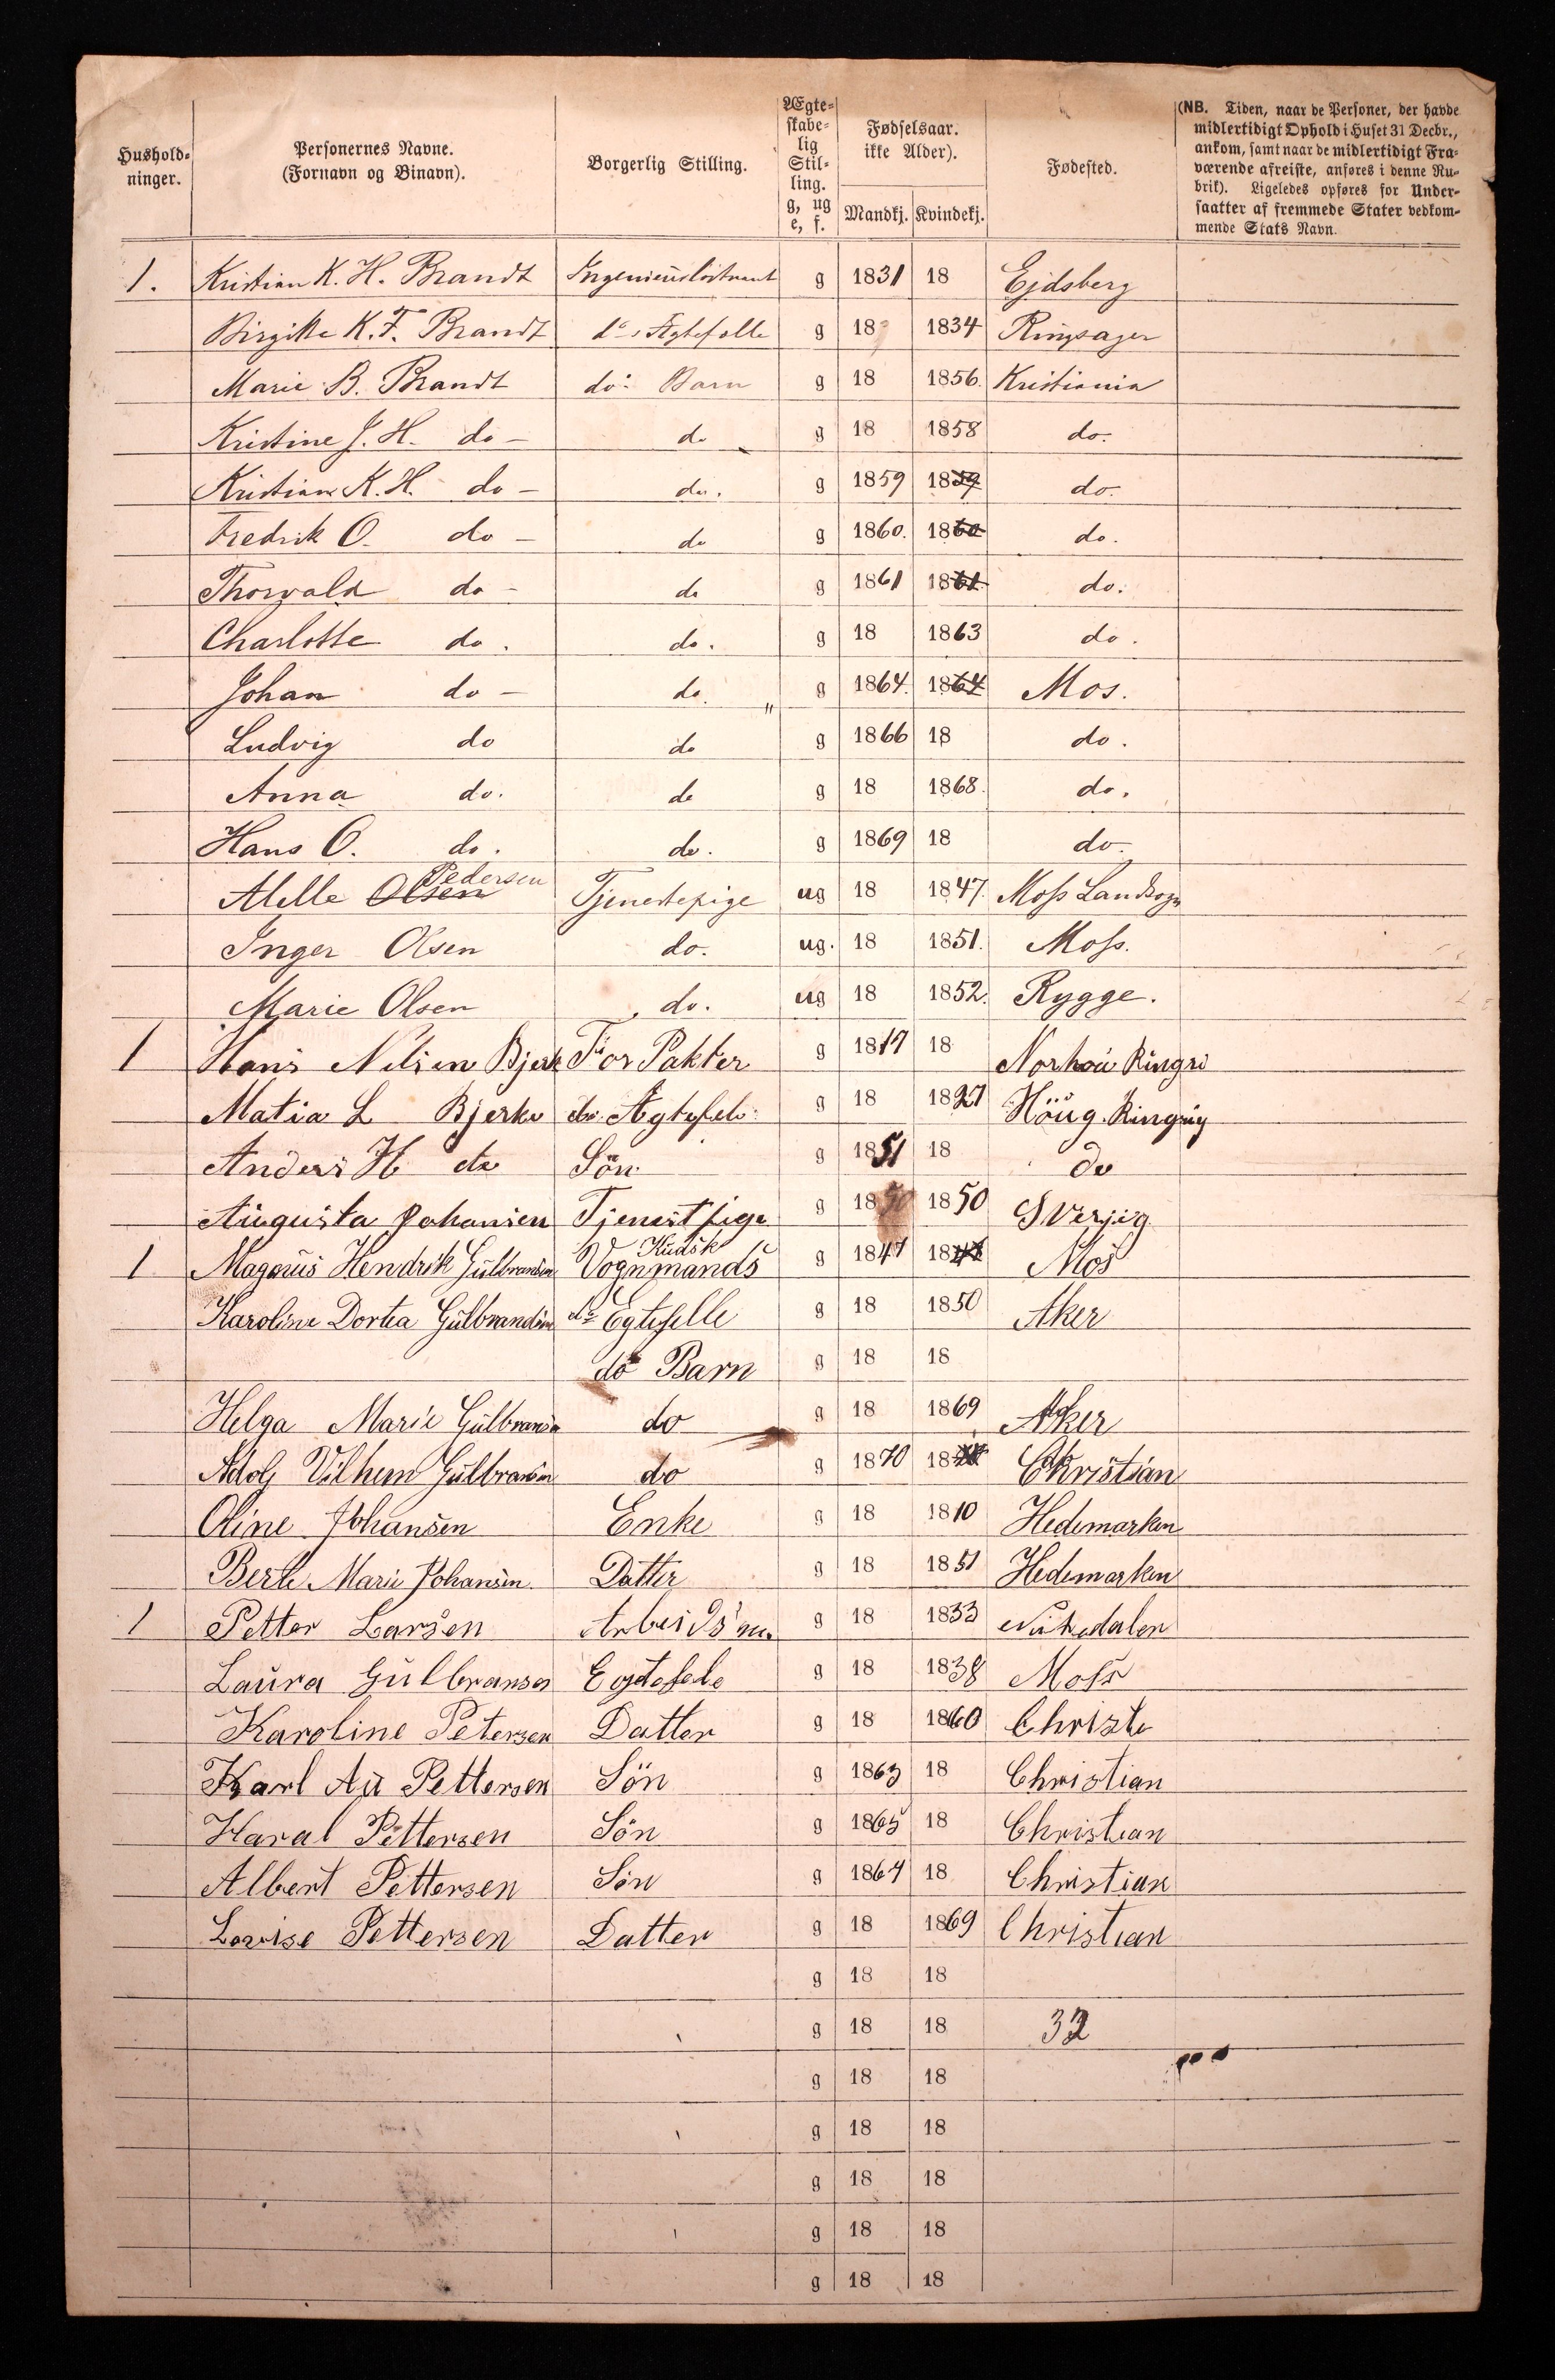 Hushold-
ninger.
Personernes Navne.
(Fornavn og Binavn).
Borgerlig Stilling.
Ægte-
skabe-
lig
Stil-
ling.
g, ug
e, f.
Fødselsaar.
ikke Alder).
Mandkj. Kvindekj.
Fødested.
(NB. Tiden, naar de Personer, der havde
midlertidigt Ophold i Huset 31 Decbr.,
ankom, samt naar de midlertidigt Fra-
værende afreiste, anføres i denne Ru-
brik). Ligeledes opføres for Under-
saatter af fremmede Stater vedkom-
mende Stats Navn.
1. Kristian K. H. Brandt g 1831 18 Ejdsberg
Birgitte K. F. Brandt do Ægtefelle g 18 1834 Ringsager
Marie B. Brandt do: Barn g 18 1856. Kristiania
Kristine J. H. do - do g 18 1858 do.
Kristian K. H. do - do. g 1859 1859 do.
Fredrik O. do - do g 1860. 1860 do.
Thorvald do - do g 1861 1861 do.
Charlotte do . do. g 18 1863 do.
Johan do - do " g 1864. 1864 Mos.
Ludvig do do g 1866 18 do.
Anna do. do g 18 1868. do.
Hans O. do. do. g 1869 18 do.
Alelle Olsen Pedersen Tjenestepige ug 18 1847. Moss Landsogn
Inger Olsen do. ug. 18 1851. Moss.
Marie Olsen do. ug 18 1852. Rygge.
1 Hans Nilsen Bjerk For Pakter g 1817 18 Norhou Ringri
Matia L Bjerke do. Ægtefele g 18 1827 Höug. Ringrig
Anders H do Sön g 1851 18 do
Augusta Johansen Tjenestpige g 1850 1850 Sverjig
1 Magnus Hendrik Gulbransen Vognmands Kudsk g 1847 1847 Mos
Karoline Dortea Gulbrandsen do Egtefelle g 18 1850 Aker
do Barn g 18 18
Helga Marie Gulbransen do g 18 1869 Aker
Adolf Vilhem Gulbransen do g 1870 18 Christian
Oline Johansen Enke g 18 1810 Hedemarken
Berte Marie Johansen. Datter g 18 1851 Hedemarken
1 Petter Larsen Arbeidsm. g 18 1833 Nitedalen
Laura Gulbransen Egtefele g 18 1838 Moss
Karoline Petersen Datter g 18 1860 Christi
Karl Au Pettersen Sön g 1863 18 Christian
Haral Pettersen Sön g 1865 18 Christian
Albert Pettersen Sön g 1867 18 Christian
Lovise Pettersen Datter g 18 1869 Christian
g 18 18
g 18 18 32
g 18 18
g 18 18
g 18 18
g 18 18
g 18 18